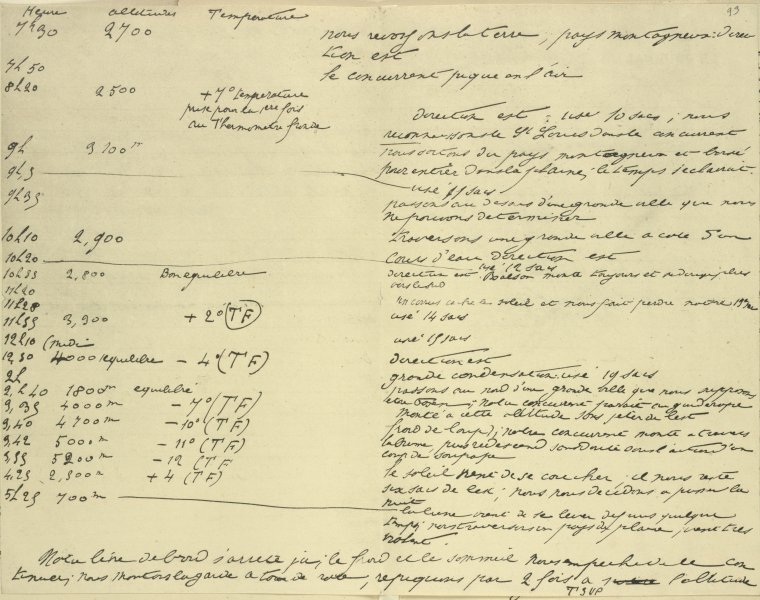 Heure altitudes Température 93
7h30 2700 nous revoyons la terre, pays montagneux: direc
tion est
7h50 le concurrent pique en l'air
8h20 2500 + 7° température
prise pour la 1ere fois
au Thermometre fronde
direction est; usé 10 sacs; nous
St Louis concurrent
9h 3100m nous sortons du pays montagneux et boisé
9h,5 pour entrer dans la plaine; le temps s'éclaircit.
usé 11 sacs
9h35 passons au dessus d'une grande ville que nous
ne pouvons determiner
10h10 2,900 traversons une grande ville a coté d'un
10h20 cours d'eau direction est
usé 12 sacs
10h55 2,800 Bon equilibre direction est Ballon monte toujours et plus
11h20 vers le sud
11h28 un cirrus cache le soleil et nous fait perdre notre
11h55 3,300 + 2° (TF) usé 14 sacs
12h10 (midi) usé 15 sacs
12,30 4000 equilibre - 4° (TF) direction est
2h grande condensation. usé 19 sacs
2,h40 1800m equilibré passons au nord d'une grande ville que nous supposons
3,35 4000m - 7° (TF) notre concurrent parait
monté a cette altitude sans jeter de lest
3,40 4700m - 10° (TF) froid de loup; notre concurrent monte a travers
3,42 5000m - 11° (TF) la brume puis redescend sans doute sous l'action d'un
3,55 5200m - 12 (TF) coup de soupape
4,25 2,500m + 4 (TF) le soleil vient de se coucher il nous reste
six sacs de lest; nous nous décidons a passer la
5h25 700m nuit
la lune vient de se lever depuis quelque
temps; nous traversons un pays de plaine, vent tres
violent.
Notre livre de bord s'arrete ici; le froid et le sommeil nous empeche de le con
tinuer; nous montons la garde a tour de role, repiquons par 2 fois a l'altitude
TSVP